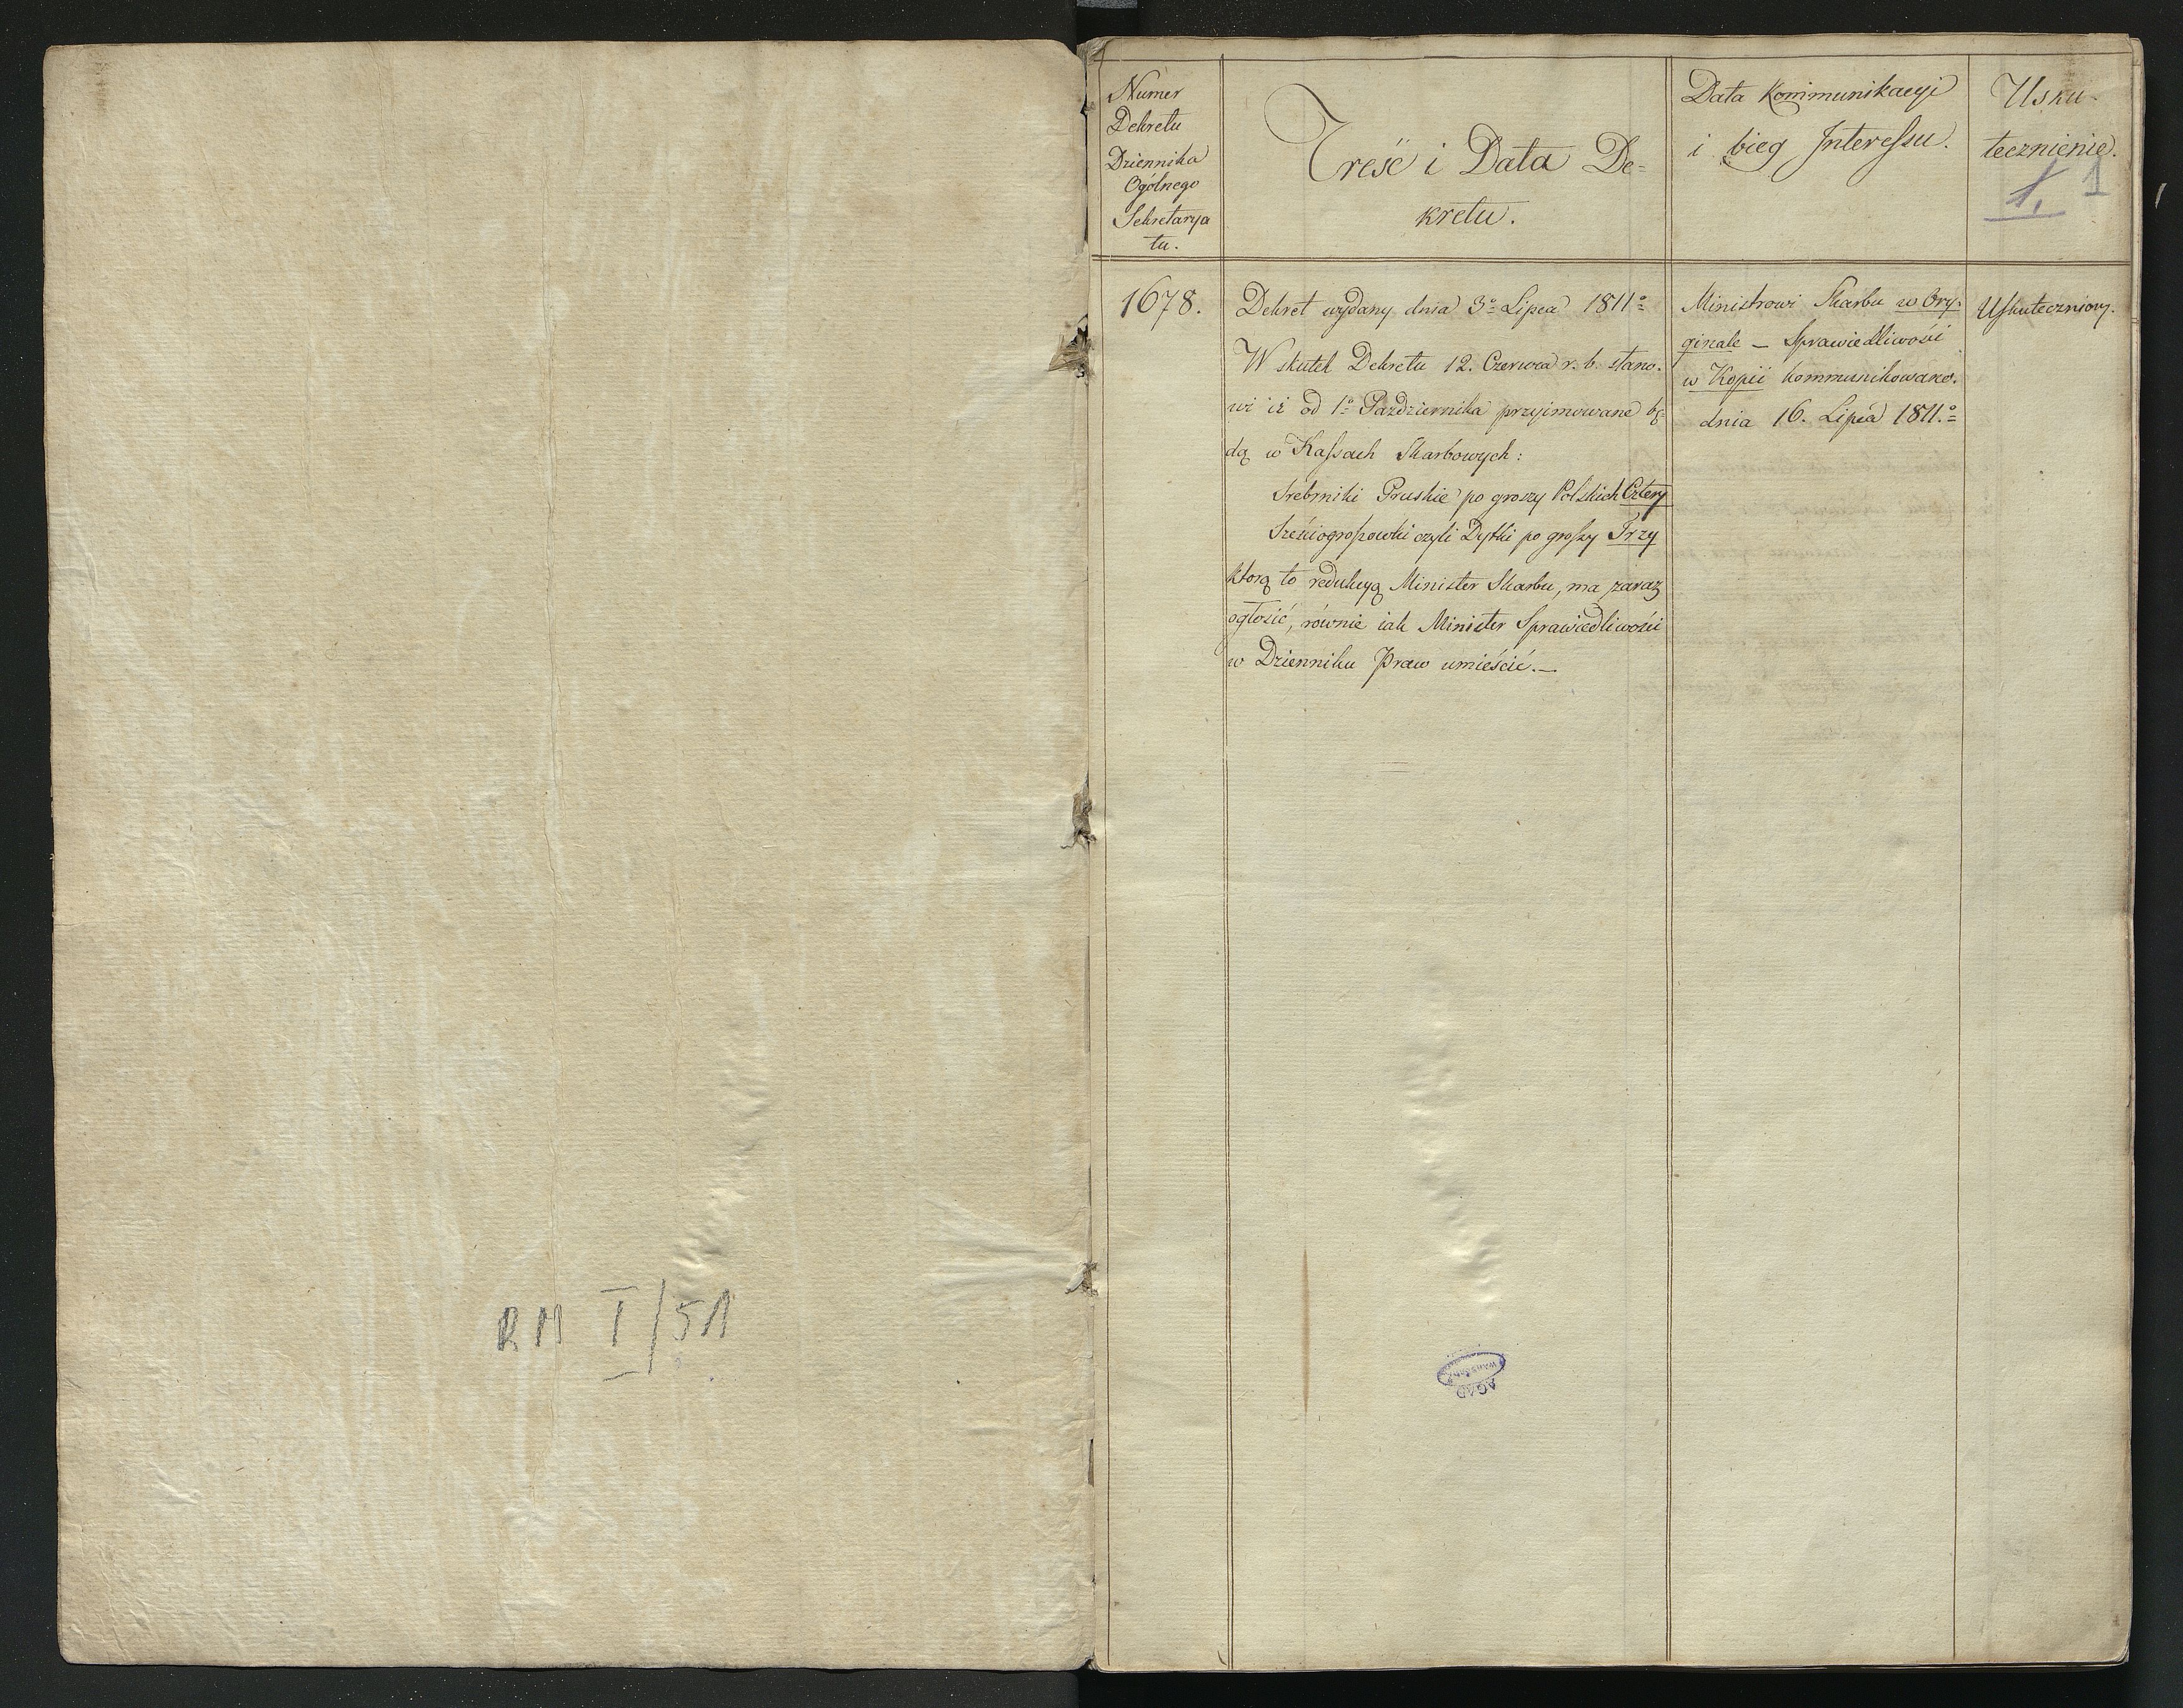 RM I/51
Numer
Dekretu
Dziennika
Ogólnego
Sekretarya
tu.
Treść i Data De-
kretu.
Data Kommunikacyi
i bieg Interessu.
Usku-
tecznienie.
1. 1
1678.
Dekret wydany dnia 3º Lipca 1811º
W skutek Dekretu 12. Czerwca r. b. stano-
wi iż od 1º Pazdziernika przyjmowane bę-
dą w Kassach Skarbowych:
Srebrniki Pruskie po groszy Polskich Cztery
Sześciogroszowki czyli Dytki po groszy Trzy
ktorą to redukcyą Minister Skarbu, ma zaraz
ogłosić, równie iak Minister Sprawiedliwości
w Dzienniku Praw umieścić. —
Ministrowi Skarbu w Ory-
ginale — Sprawiedliwości
w Kopii kommunikowano.
dnia 16. Lipca 1811.º
Uskuteczniony.
AGAD
WARSZAWA